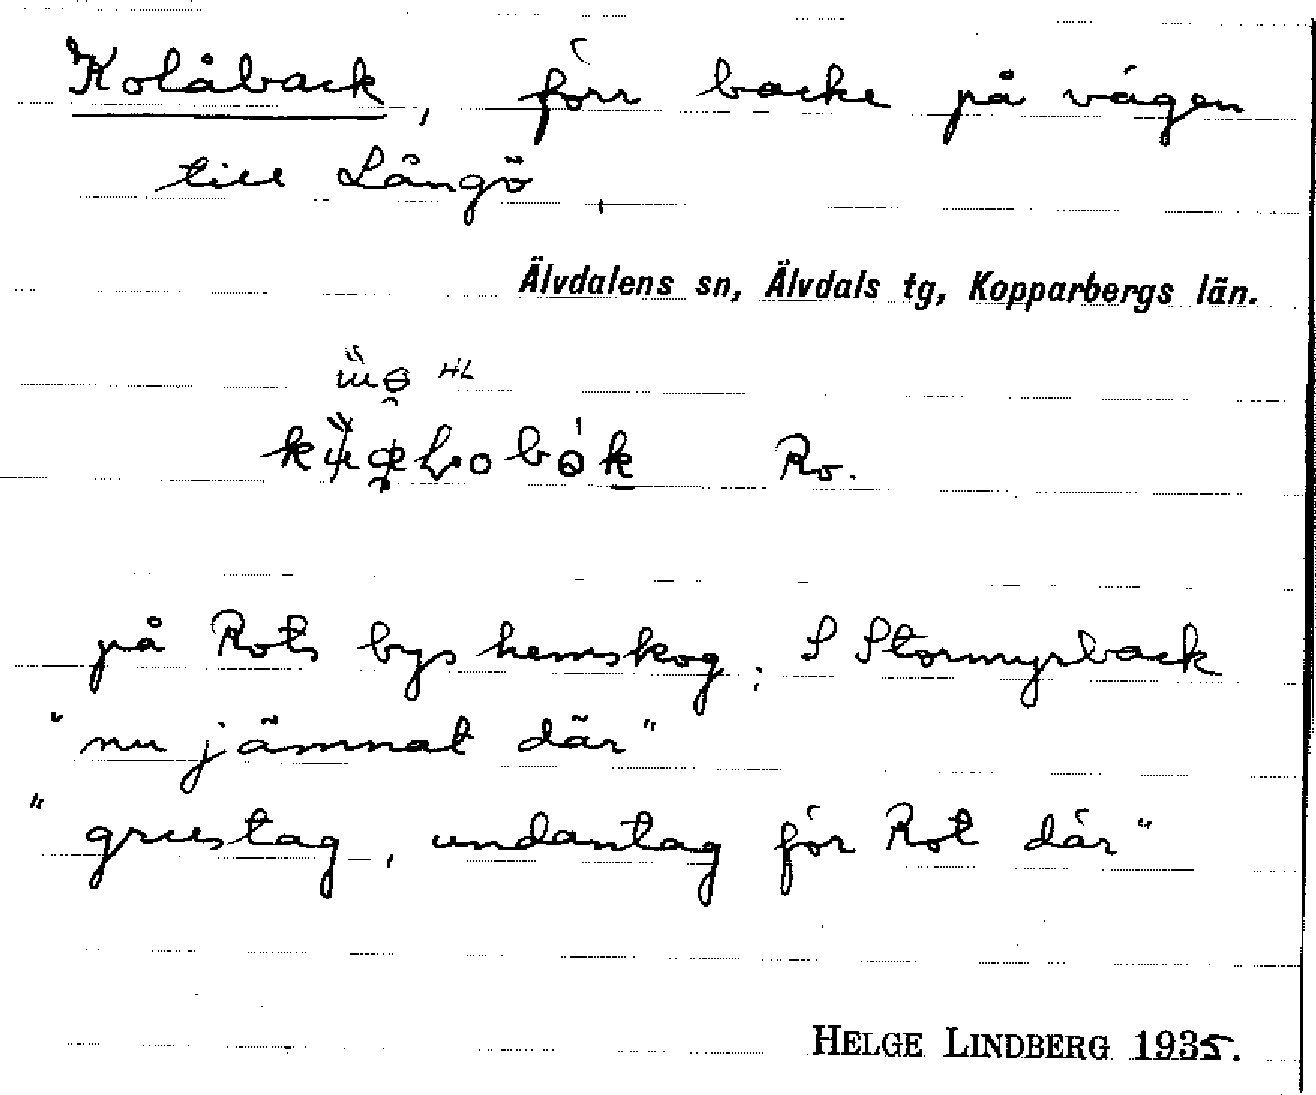 Kolåback, förr backe på vägen
till Långö
Älvdalens sn, Älvdals tg, Kopparbergs län.
HL
Ro.
på Rots bys hemskog; S Stormyrback
"nu jämnat där"
"grustag, undantag för Rot där"
HELGE LINDBERG 1935.